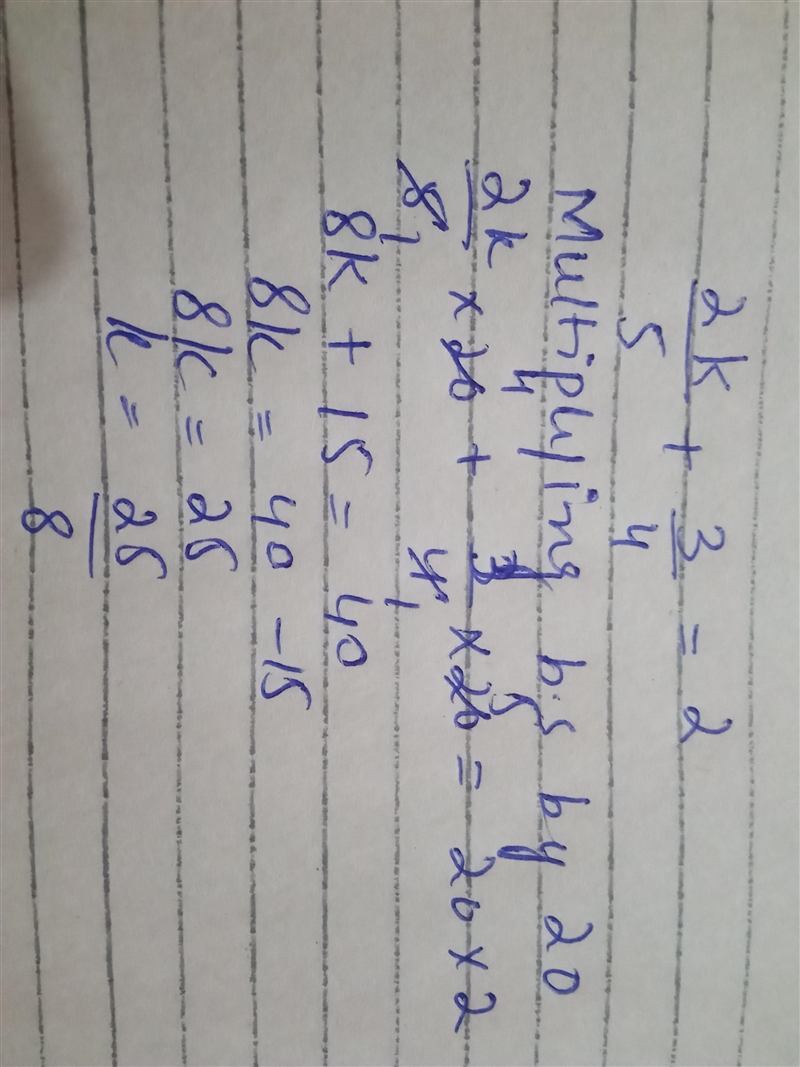 2k/5 + 3/4 = 2
Multiplying b.s by 20
2k/5 1 × 20 4 + 3/4 1 × 20 5 = 20 × 2
8k + 15 = 40
8k = 40 - 15
8k = 25
k = 25/8